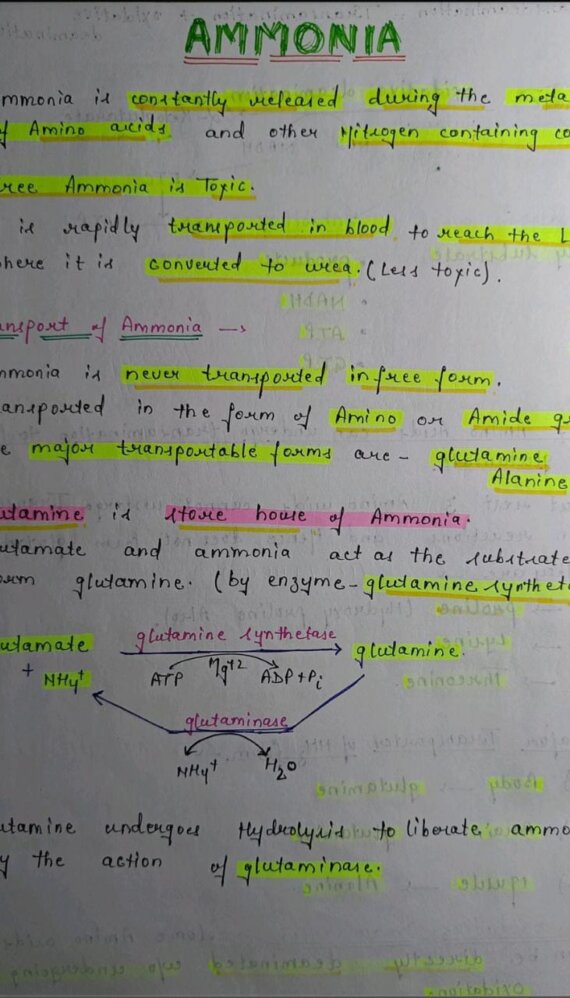 AMMONIA
mmonia is constantly released during the meta
f Amino acids and other Nitrogen containing co
ree Ammonia is Toxic.
is rapidly transported in blood to reach the L
here it is converted to urea. (Less toxic).
ansport of Ammonia →
mmonia is never transported in free form.
ansported in the form of Amino or Amide g
e major transportable forms are - glutamine
Alanine
utamine is store house of Ammonia.
utamate and ammonia act as the substrate
orm glutamine. (by enzyme - glutamine synthet
utamate glutamine synthetase glutamine.
+ NH4+ ATP Mg+2 ADP + Pi
glutaminase
NH4+ H2O
utamine undergoes Hydrolysis to liberate ammo
y the action of glutaminase.